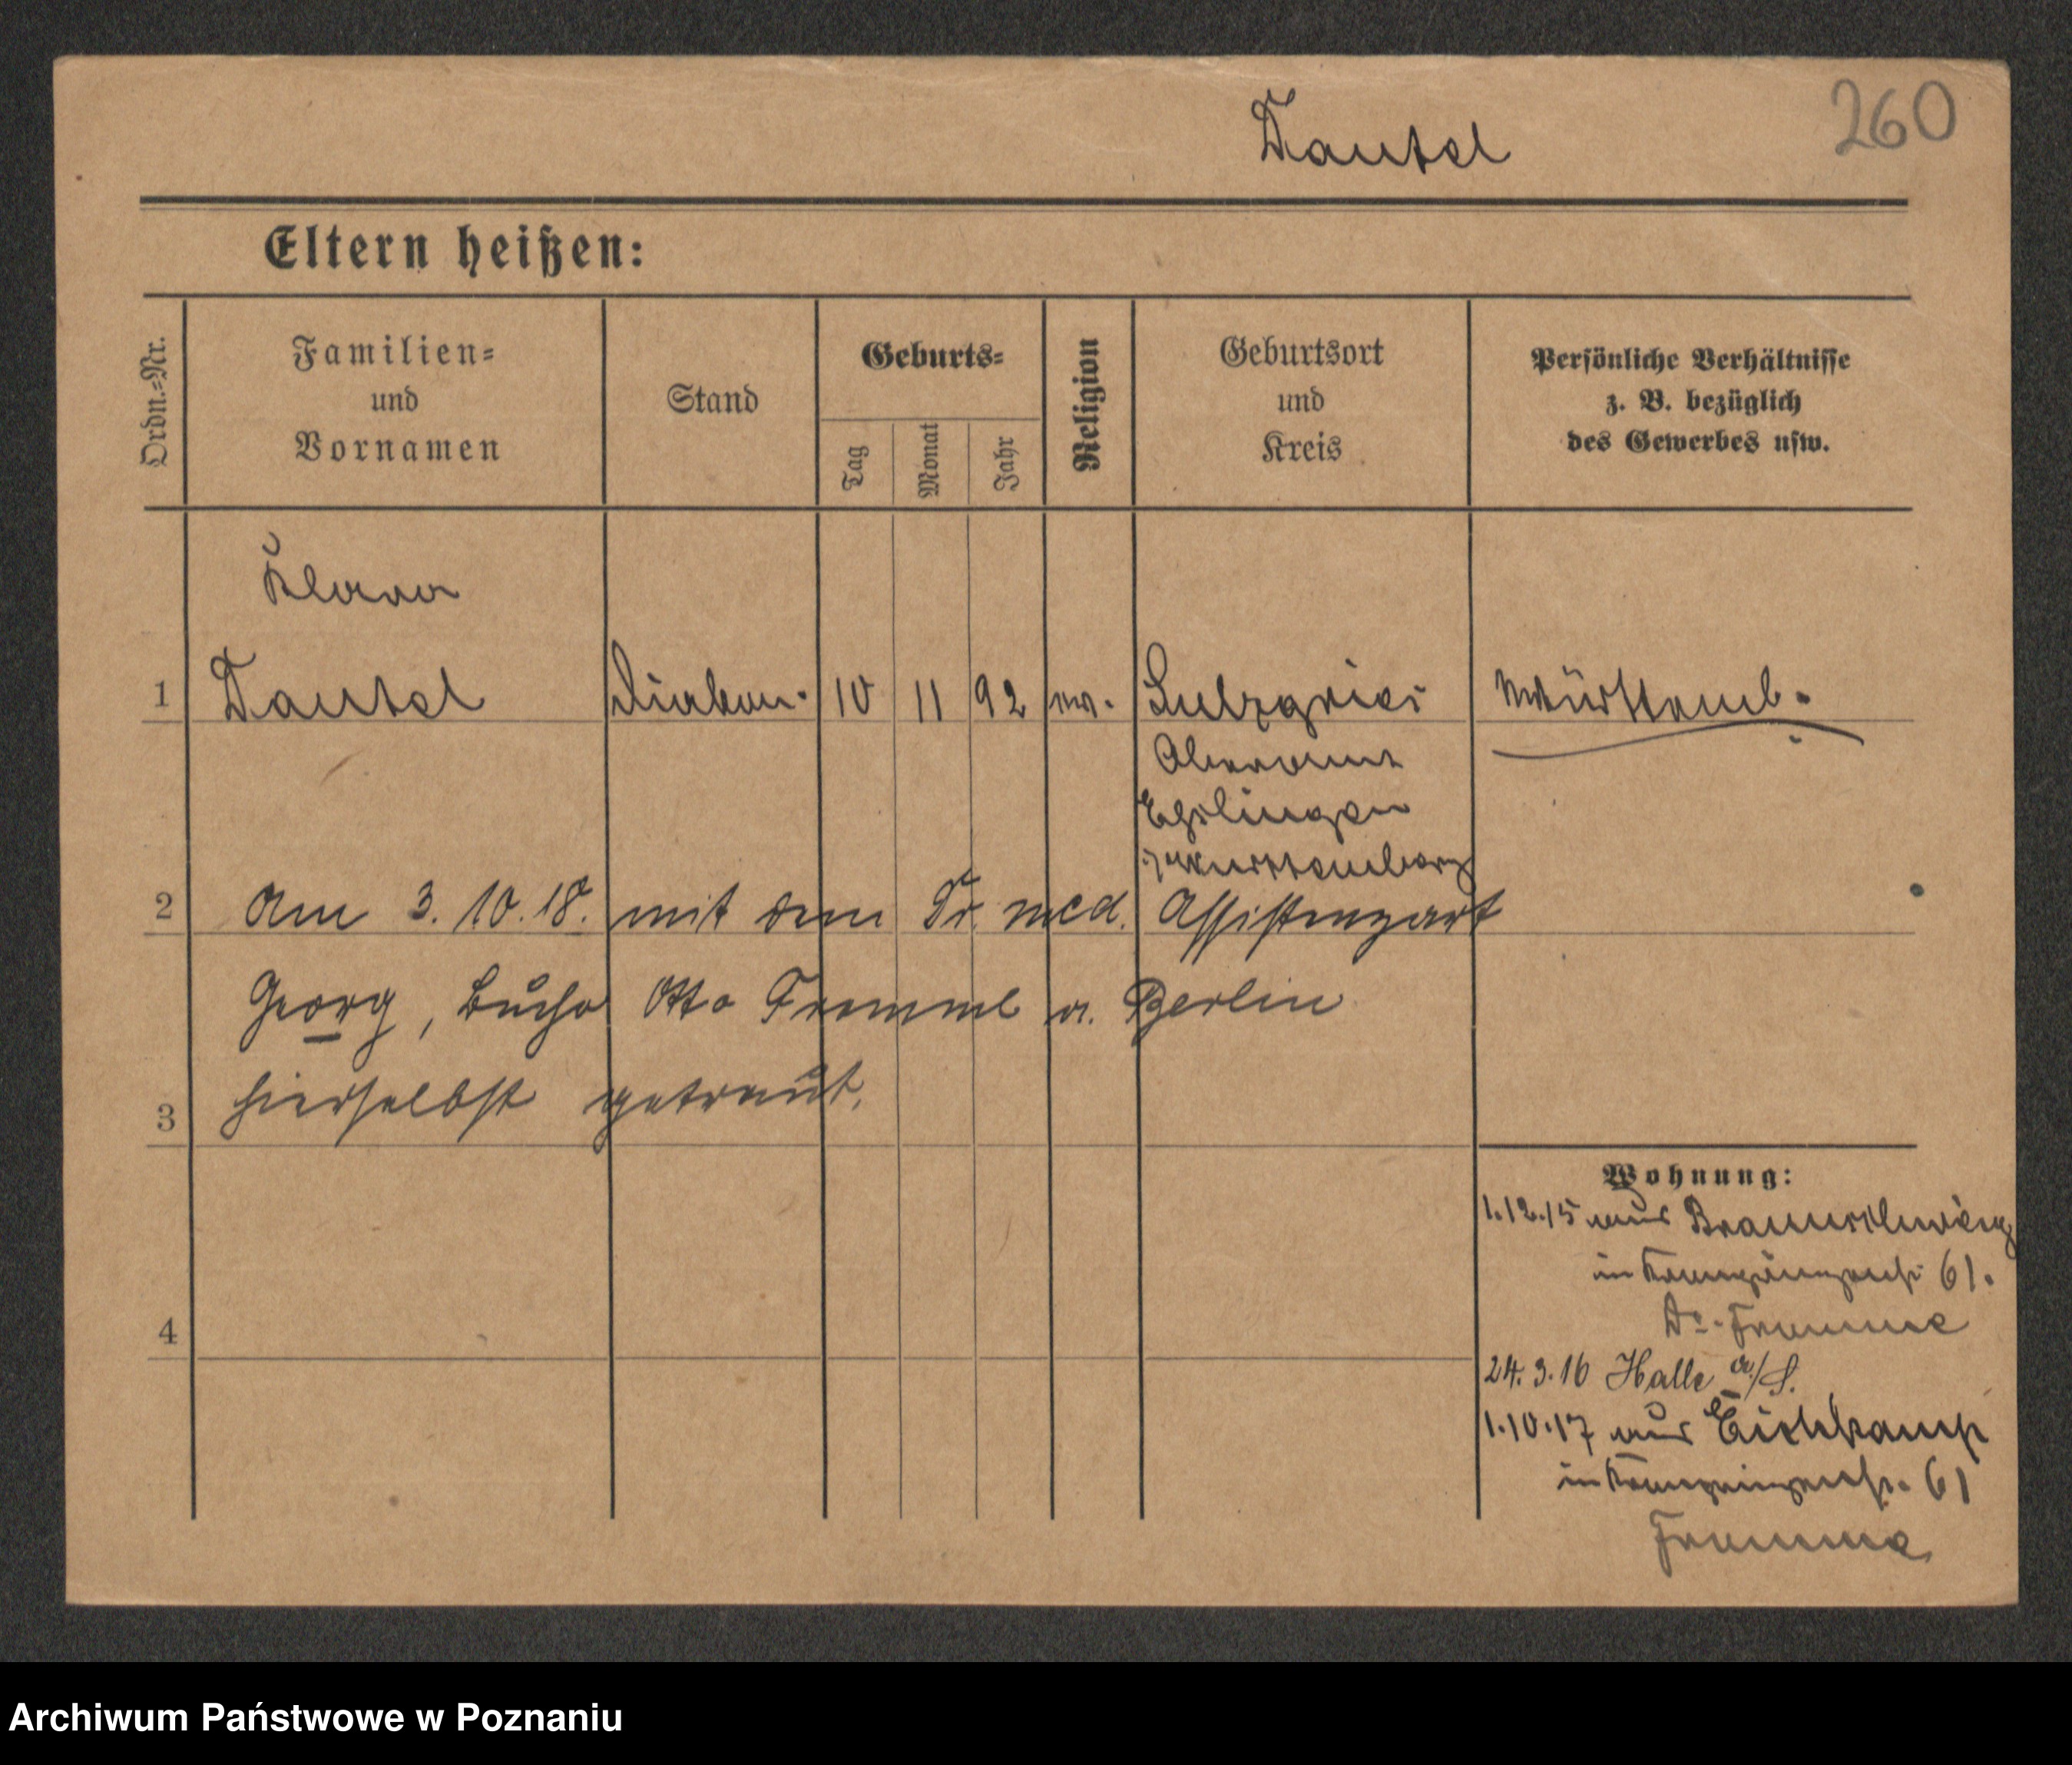 Dautel
260
Eltern heißen:
Ordn.=Nr.
Familien=
und
Vornamen
Stand
Geburts=
Tag
Monat
Jahr
Religion
Geburtsort
und
Kreis
Persönliche Verhältnisse
z. B. bezüglich
des Gewerbes usw.
Klara
1 Dautel Diakon. 10 11 92 ev. Sulzgries Württemb.
Oberamt
Eßlingen
Württemberg
2 Am 3.10.18. mit dem Dr. med. Assistenzarzt
Georg, Otto Fromme a. Berlin
3 hierselbst getraut.
Wohnung:
1.12.15 aus Braunschweig
in 61.
Dr. Fromme
4
24.3.16 Halle a/S.
1.10.17 aus Eichkamp
in 61
Fromme
Archiwum Państwowe w Poznaniu